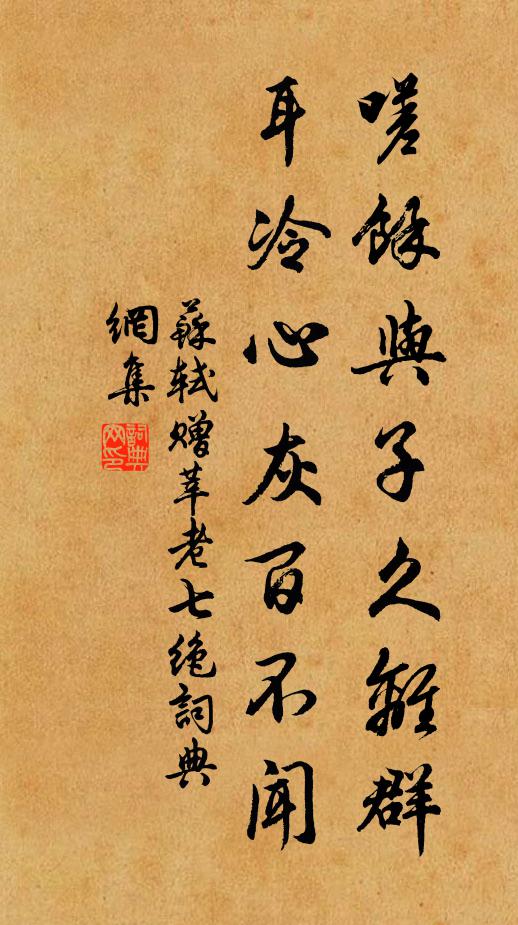 嗟餘與子久離群
耳冷心灰百不聞
蘇軾贈莘老七絶詞典
網集
詞典
网印